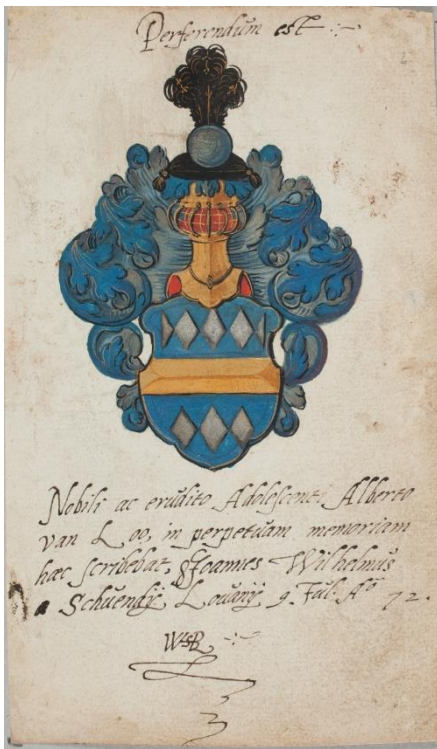 Perferendum est :~
Nobili ac erudito Adolescent: Alberto
van Loo, in perpetuam memoriam
hæc scribebat, Joannes Wilhelmus
a Schuendij Louanij 9. Jul. Aº 72.